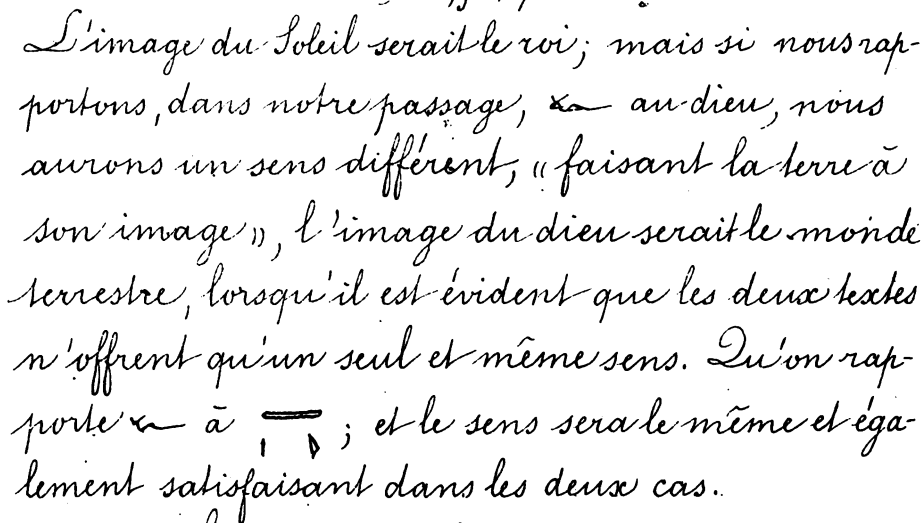 L'image du Soleil serait le roi; mais si nous rap-
portons, dans notre passage, 𓆑 au dieu, nous
aurons un sens différent, « faisant la terre à
son image », l'image du dieu serait le monde
terrestre, lorsqu'il est évident que les deux textes
n'offrent qu'un seul et même sens. Qu'on rap-
porte 𓆑 à 𓇾; et le sens sera le même et éga-
lement satisfaisant dans les deux cas.